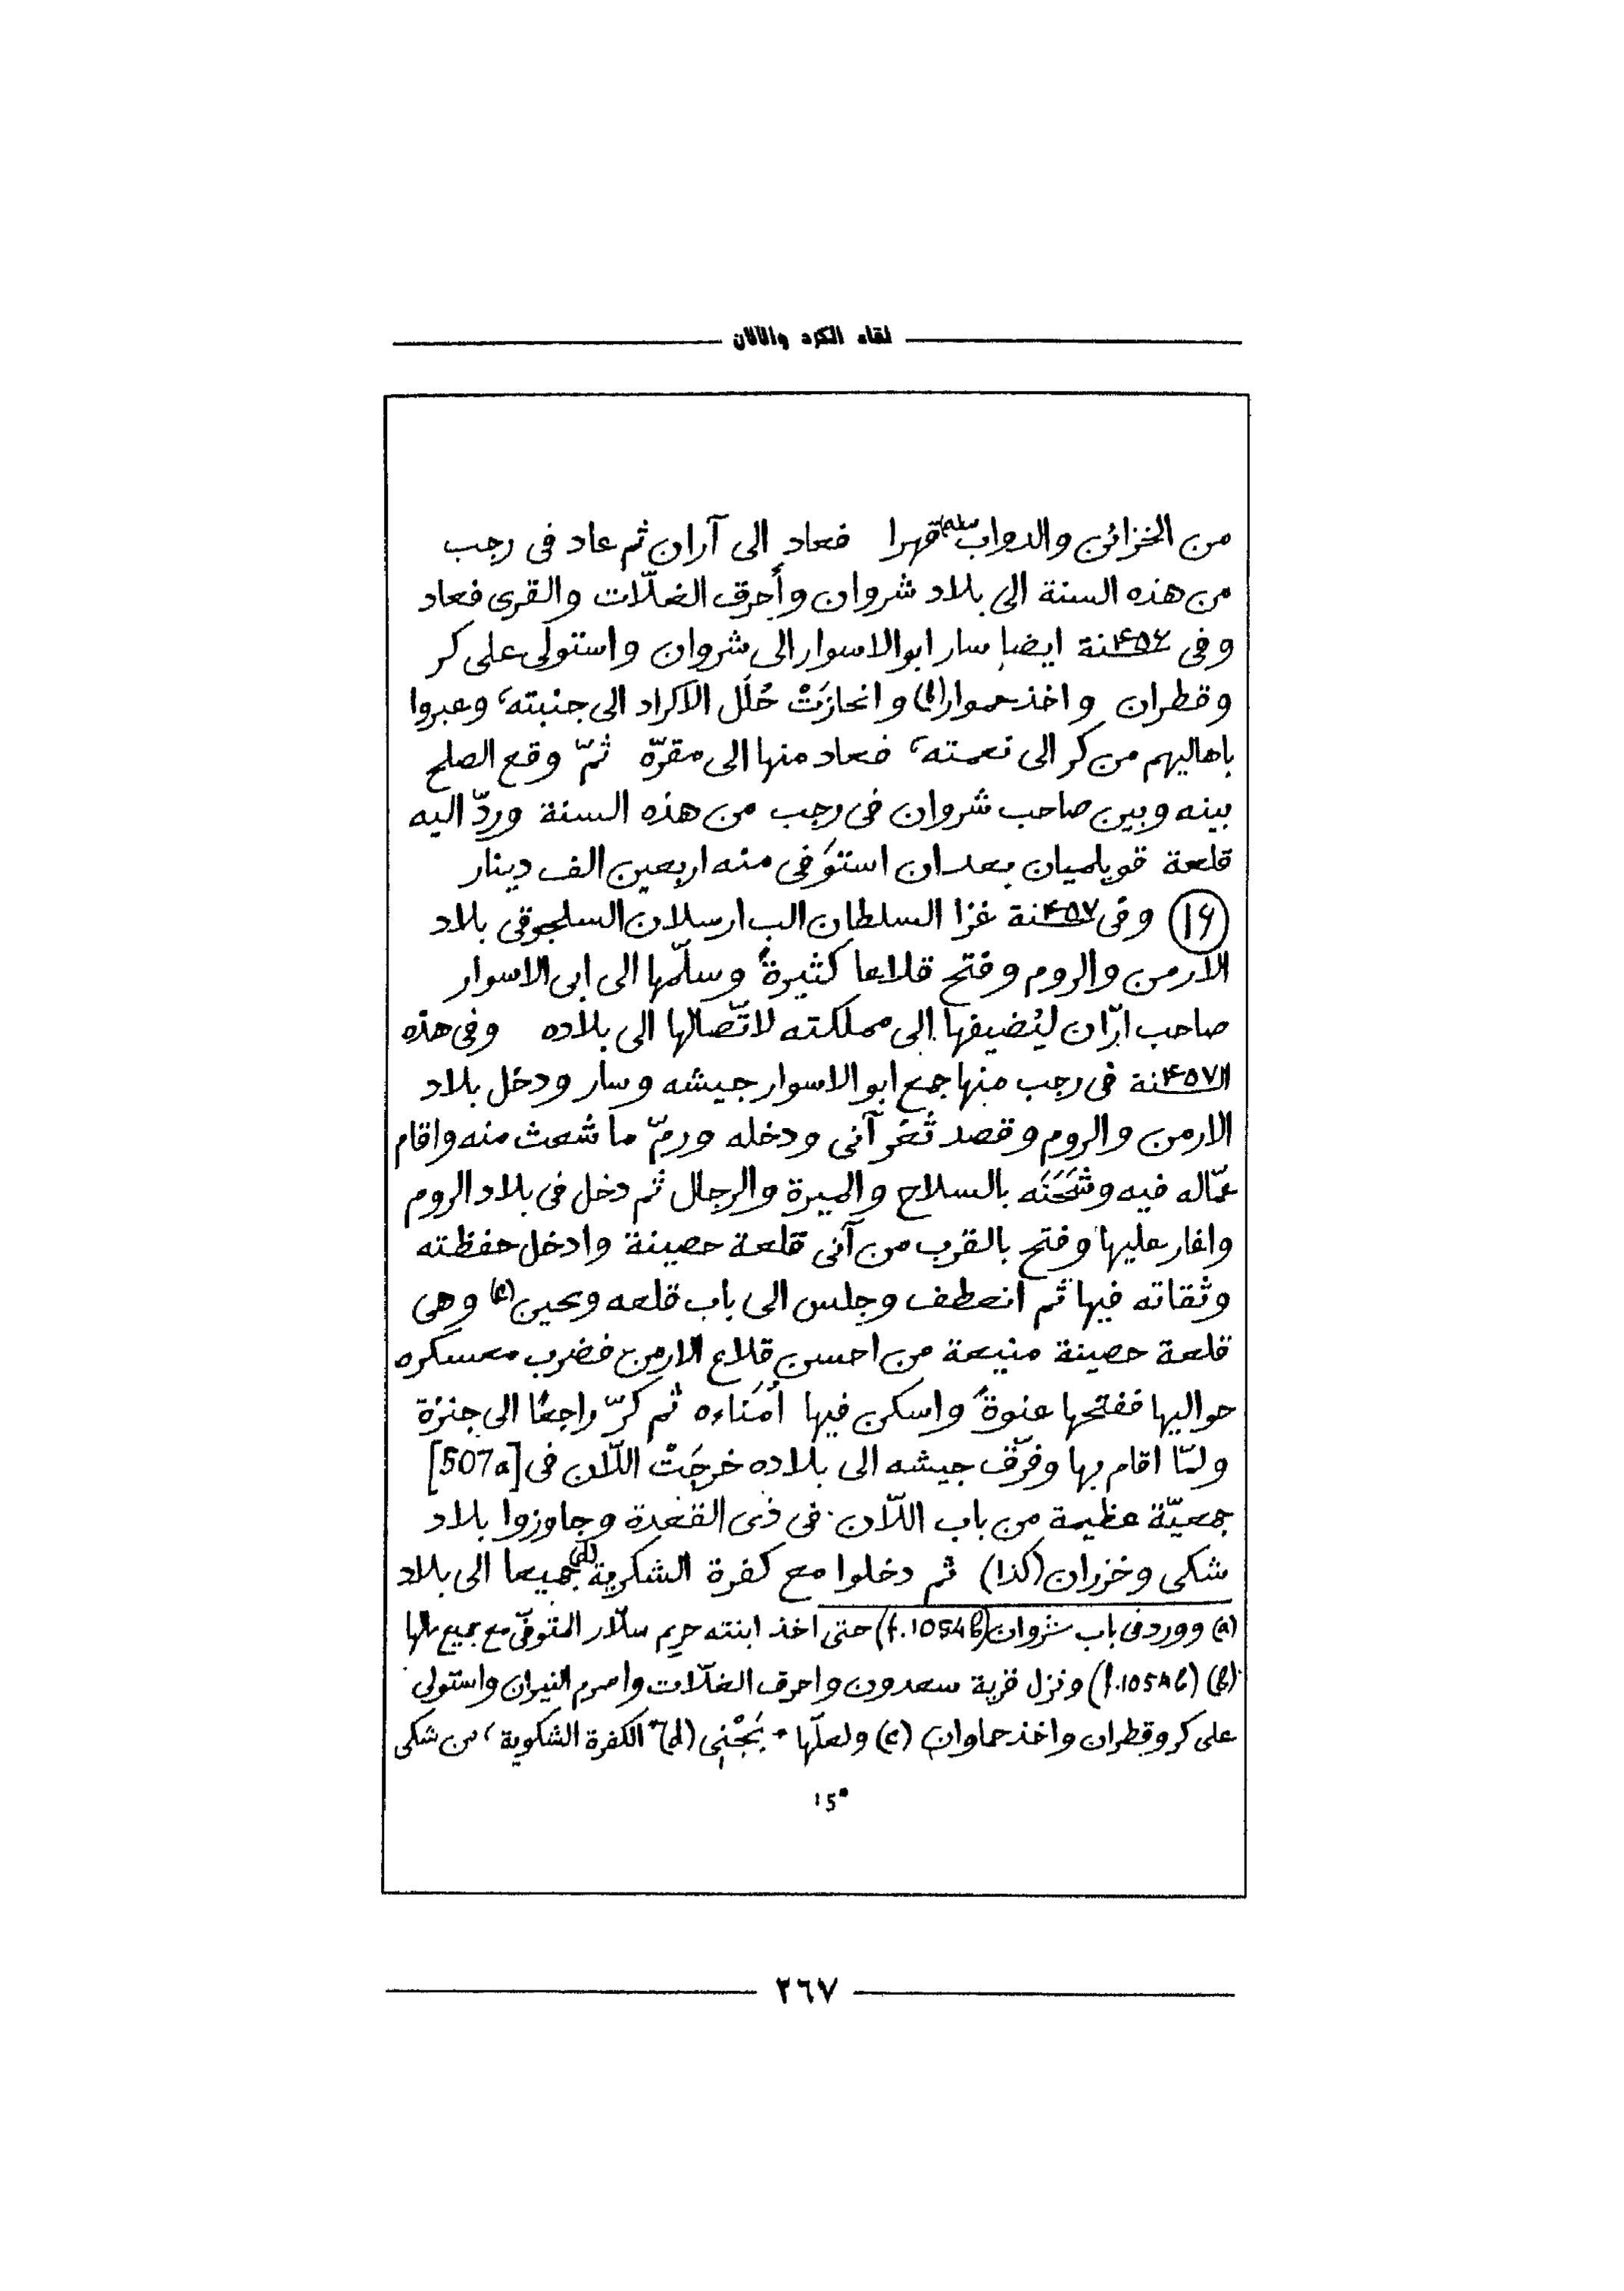 لقاء الكرد واللان
من الخزائن والدواب (a) قهرا فعاد الى آران ثم عاد فى رجب
من هذه السنة الى بلاد شروان وأحرق الغلّات والقرى فعاد
وفى سنة ۴۵۶ ايضا سار ابوالاسوار الى شروان واستولى على كر
وقطران واخذ حموار (b) وانحازَتْ حُلَل الاكراد الى جنبته، وعبروا
باهاليهم من كر الى نعمته، فعاد منها الى مقرّه ثمّ وقع الصلح
بينه وبين صاحب شروان فى رجب من هذه السنة وردّ اليه
قلعة قويلميان بعد ان استَوفى منه اربعين الف دينار
(۱۶) وفى سنة ۴۵۷ غزا السلطان الب ارسلان السلجوقى بلاد
الارمن والروم وفتح قلاعا كثيرةً وسلّمها الى ابى الاسوار
صاحب ارّان ليُضيفها الى مملكته لاتّصالها الى بلاده وفى هذه
السنة ۴۵۷ فى رجب منها جمع ابو الاسوار جيشه وسار ودخل بلاد
الارمن والروم وقصد ثَغر آنى ودخله ورمّ ما شعث منه واقام
عمّاله فيه وشَحَنَه بالسلاح والميرة والرجال ثم دخل فى بلاد الروم
واغار عليها وفتح بالقرب من آنى قلعة حصينة وادخل حفظته
وثقاته فيها ثم انعطف وجلس الى باب قلعه ويحين (c) وهى
قلعة حصينة منيعة من احسن قلاع الارمن فضرب معسكره
حواليها ففتحها عنوةً واسكن فيها اُمَناءه ثم كرّ راجعًا الى جنزة
ولمّا اقام بها وفرّق جيشه الى بلاده خرجَتْ اللّان فى [507a]
جمعيّة عظيمة من باب اللّان فى ذى القعدة وجاوزوا بلاد
شكى وخزران (كذا) ثم دخلوا مع كفرة الشكرية (d) جميعا الى بلاد
(a) وورد فى باب شروان (f.1054b) حتى اخذ ابنته حريم سلّار المتوفّى مع جميع مالها
(b) (f.1054b) ونزل قرية سعدون واحرق الغلّات واضرم النيران واستولى
على كر وقطران واخذ حماوان (c) ولعلّها * بَجْنى (d) * الكفرة الشكوية، من شكى
15*
٢٦٧